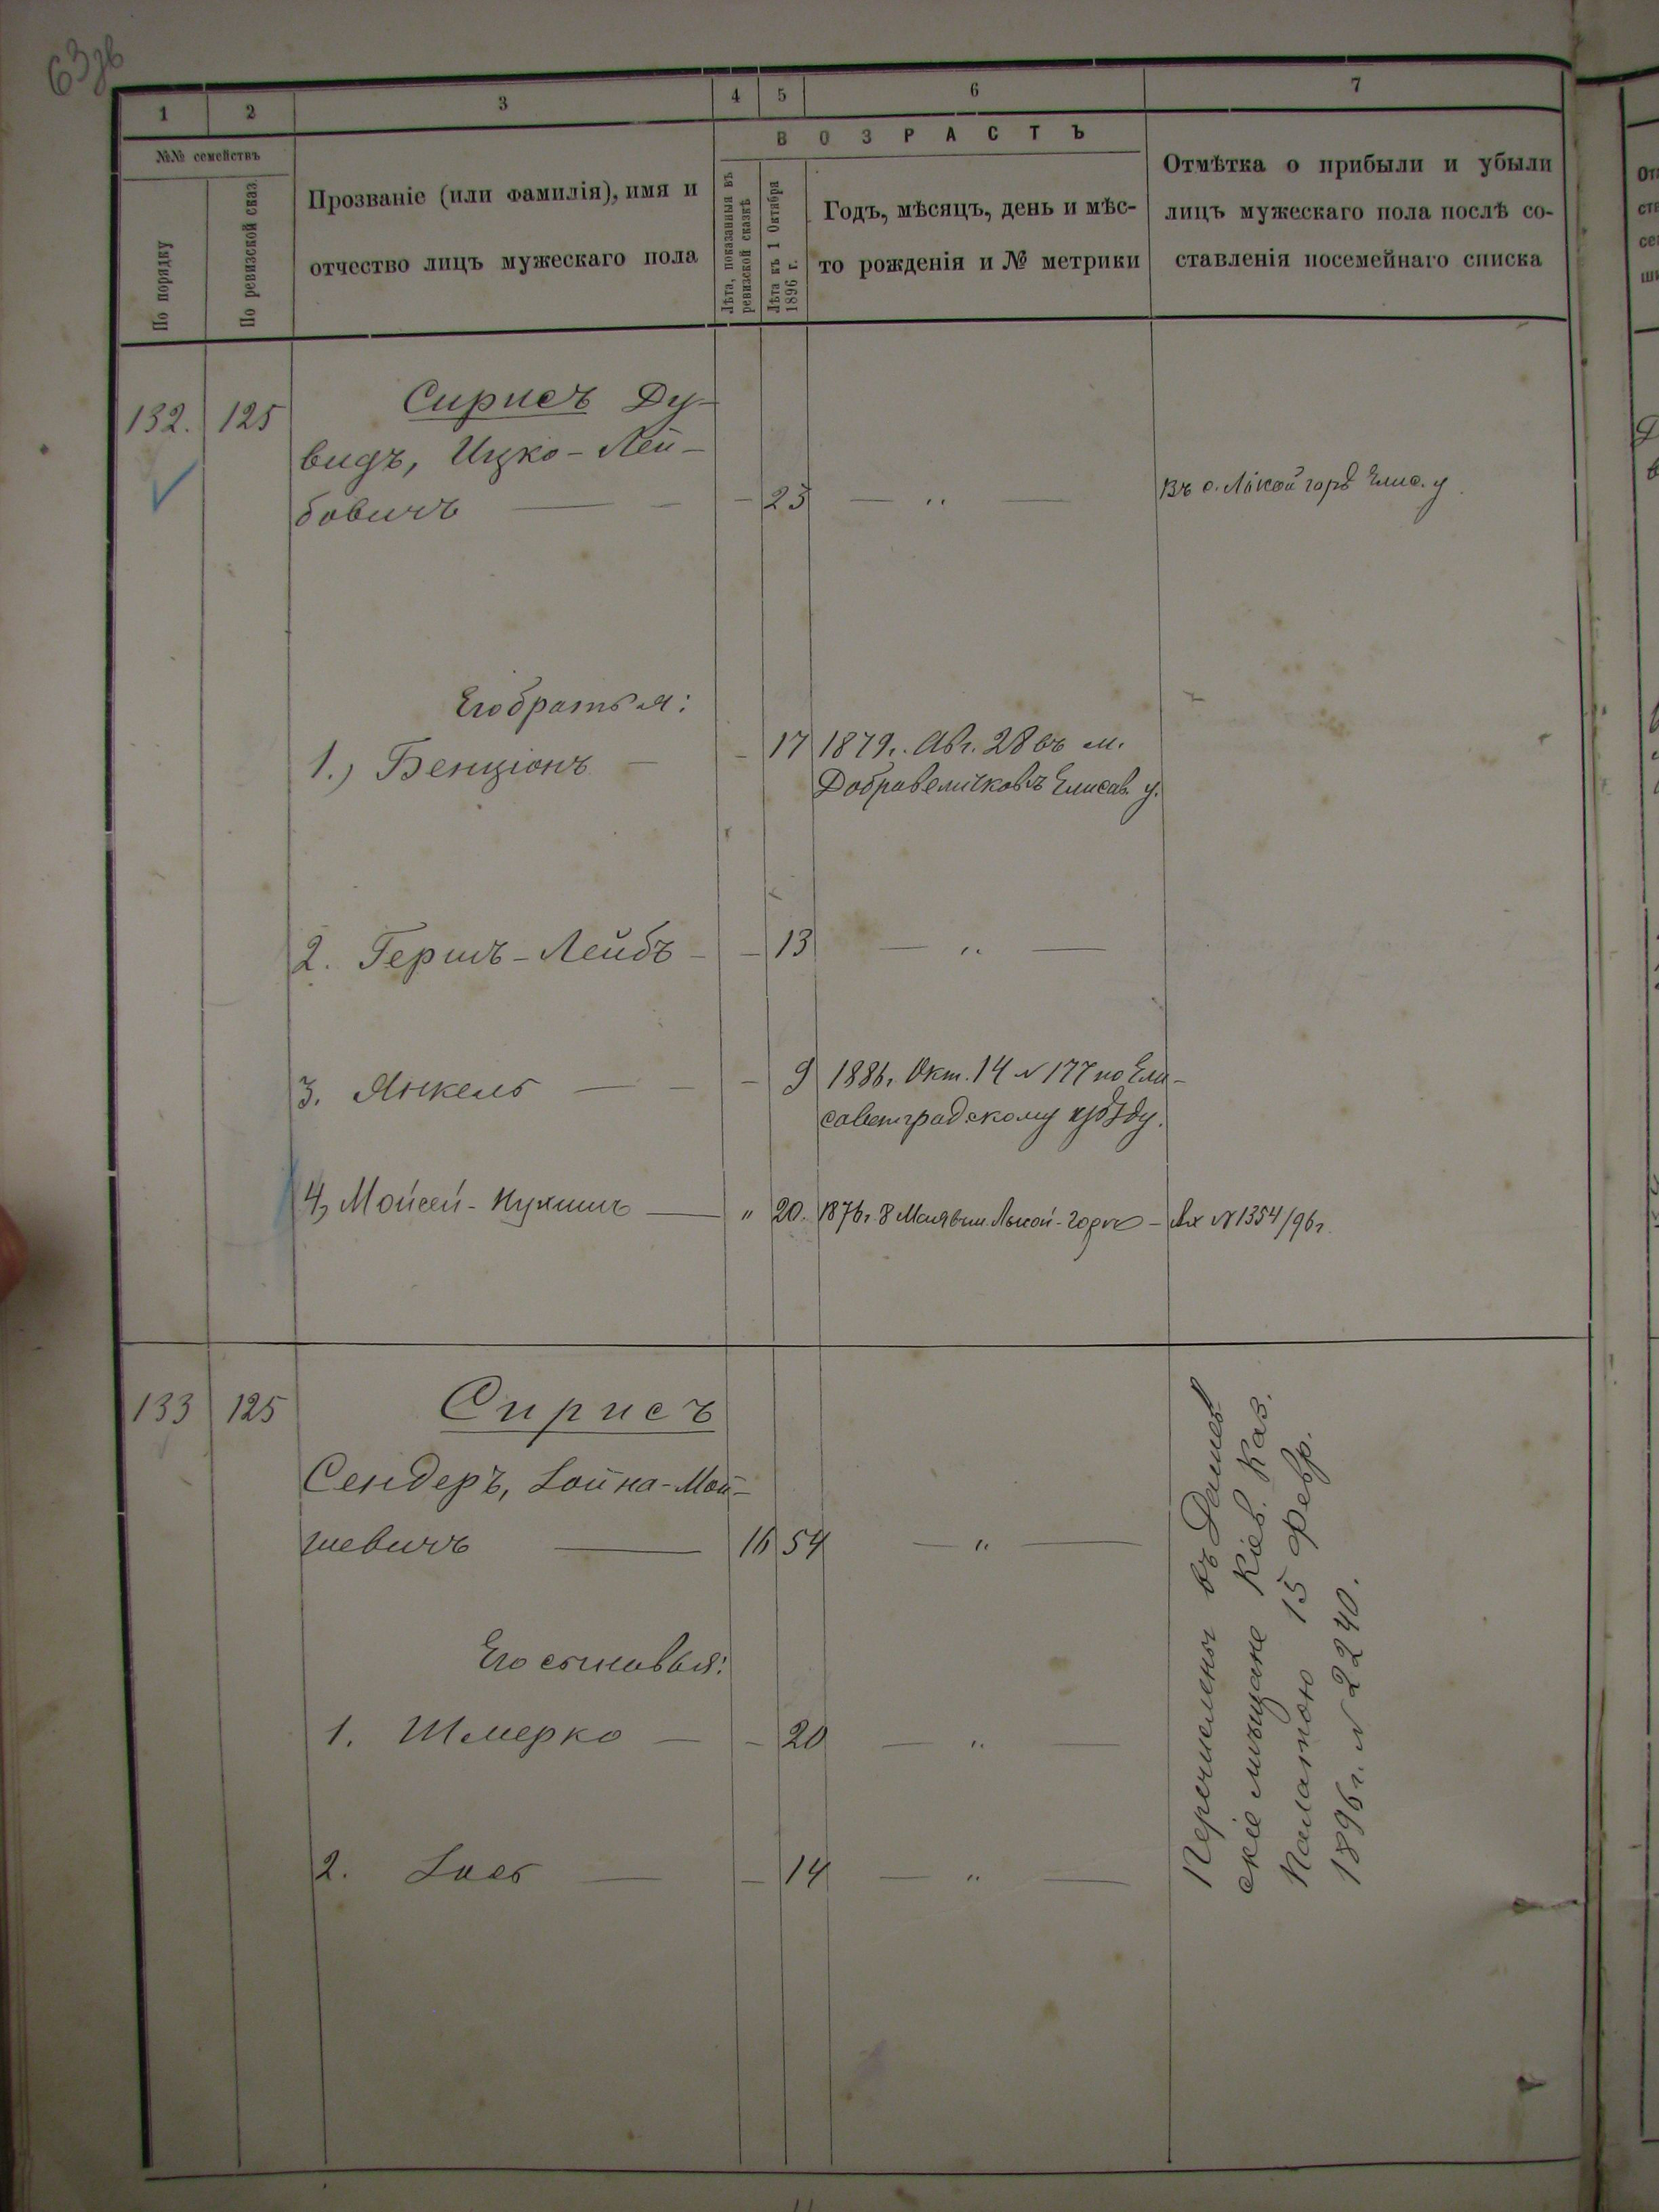 63зв
1 2 3 4 5 6 7
№№ семействъ
По порядку
По ревизской сказ.
Прозваніе (или фамилія), имя и
отчество лицъ мужескаго пола
ВОЗРАСТЪ
Лѣта, показанныя въ
ревизской сказкѣ
Лѣта къ 1 Октября
1896 г.
Годъ, мѣсяцъ, день и мѣс-
то рожденія и № метрики
Отмѣтка о прибыли и убыли
лицъ мужескаго пола послѣ со-
ставленія посемейнаго списка
132. 125 Сирисъ Ду-
видъ, Ицко-Лей-
бовичъ — - 25 — „ — Въ с. Лысой горѣ Елис. у.
Его братья:
1.) Бенціонъ — - 17 1879г. Авг. 28 въ м.
Добровеличковкѣ Елисав. у.
2. Гершъ-Лейбъ - - 13 — „ —
3. Янкель — - - 9 1886г. Окт. 14 № 177 по Ели-
саветградскому уѣзду.
4, Мойсей- — „ 20. 1876г. 8 Мая въ м. Лысой-горѣ - № 1354/96г.
133 125 Сирисъ
Сендеръ, Іойна-Мой-
шевичъ — 16 54 — „ —
Его сыновья:
1. Шмерко — - 20 — „ —
2. Іось — - 14 — „ —
Перечислены въ Дашев-
скіе мѣщане Кіев. Каз.
Палатою 15 Февр.
1896г. № 2240.